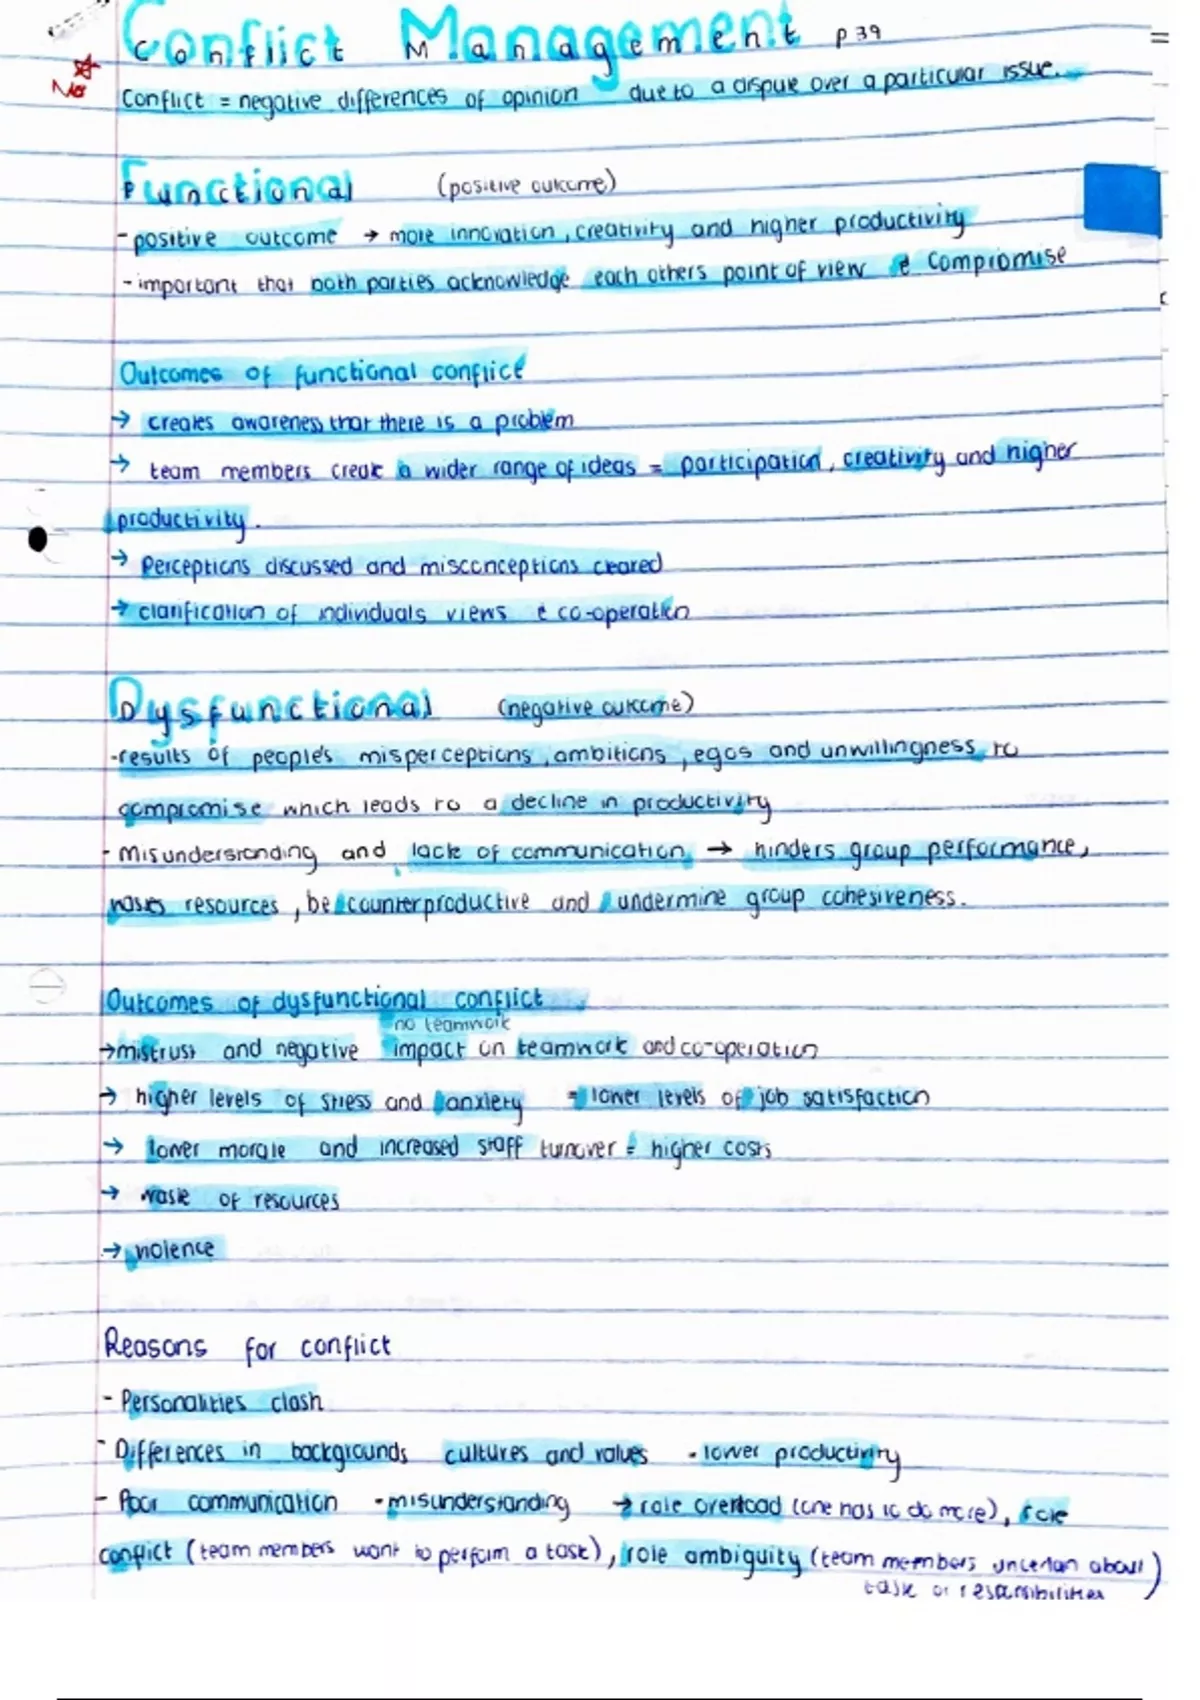 Conflict Management p 39
Conflict = negative differences of opinion due to a dispute over a particular issue.
Functional (positive outcome)
- positive outcome → more innovation, creativity and higher productivity
- important that both parties acknowledge each others point of view & compromise
Outcomes of functional conflict
→ creates awareness that there is a problem
→ team members create a wider range of ideas = participation, creativity and higher
productivity.
→ Perceptions discussed and misconceptions cleared
→ clarification of individuals views & co-operation
Dysfunctional (negative outcome)
-results of people's misperceptions, ambitions, egos and unwillingness to
compromise which leads to a decline in productivity
- Misunderstanding and lack of communication → hinders group performance,
wastes resources, be counterproductive and undermine group cohesiveness.
Outcomes of dysfunctional conflict
no teamwork
→ mistrust and negative impact on teamwork and co-operation
→ higher levels of stress and anxiety = lower levels of job satisfaction
→ lower morale and increased staff turnover = higher costs
→ waste of resources
→ violence
Reasons for conflict
- Personalities clash
- Differences in backgrounds cultures and values - lower productivity
- Poor communication - misunderstanding → role overload (one has to do more), role
conflict (team members want to perform a task), role ambiguity (team members uncertain about
task or responsibilities)